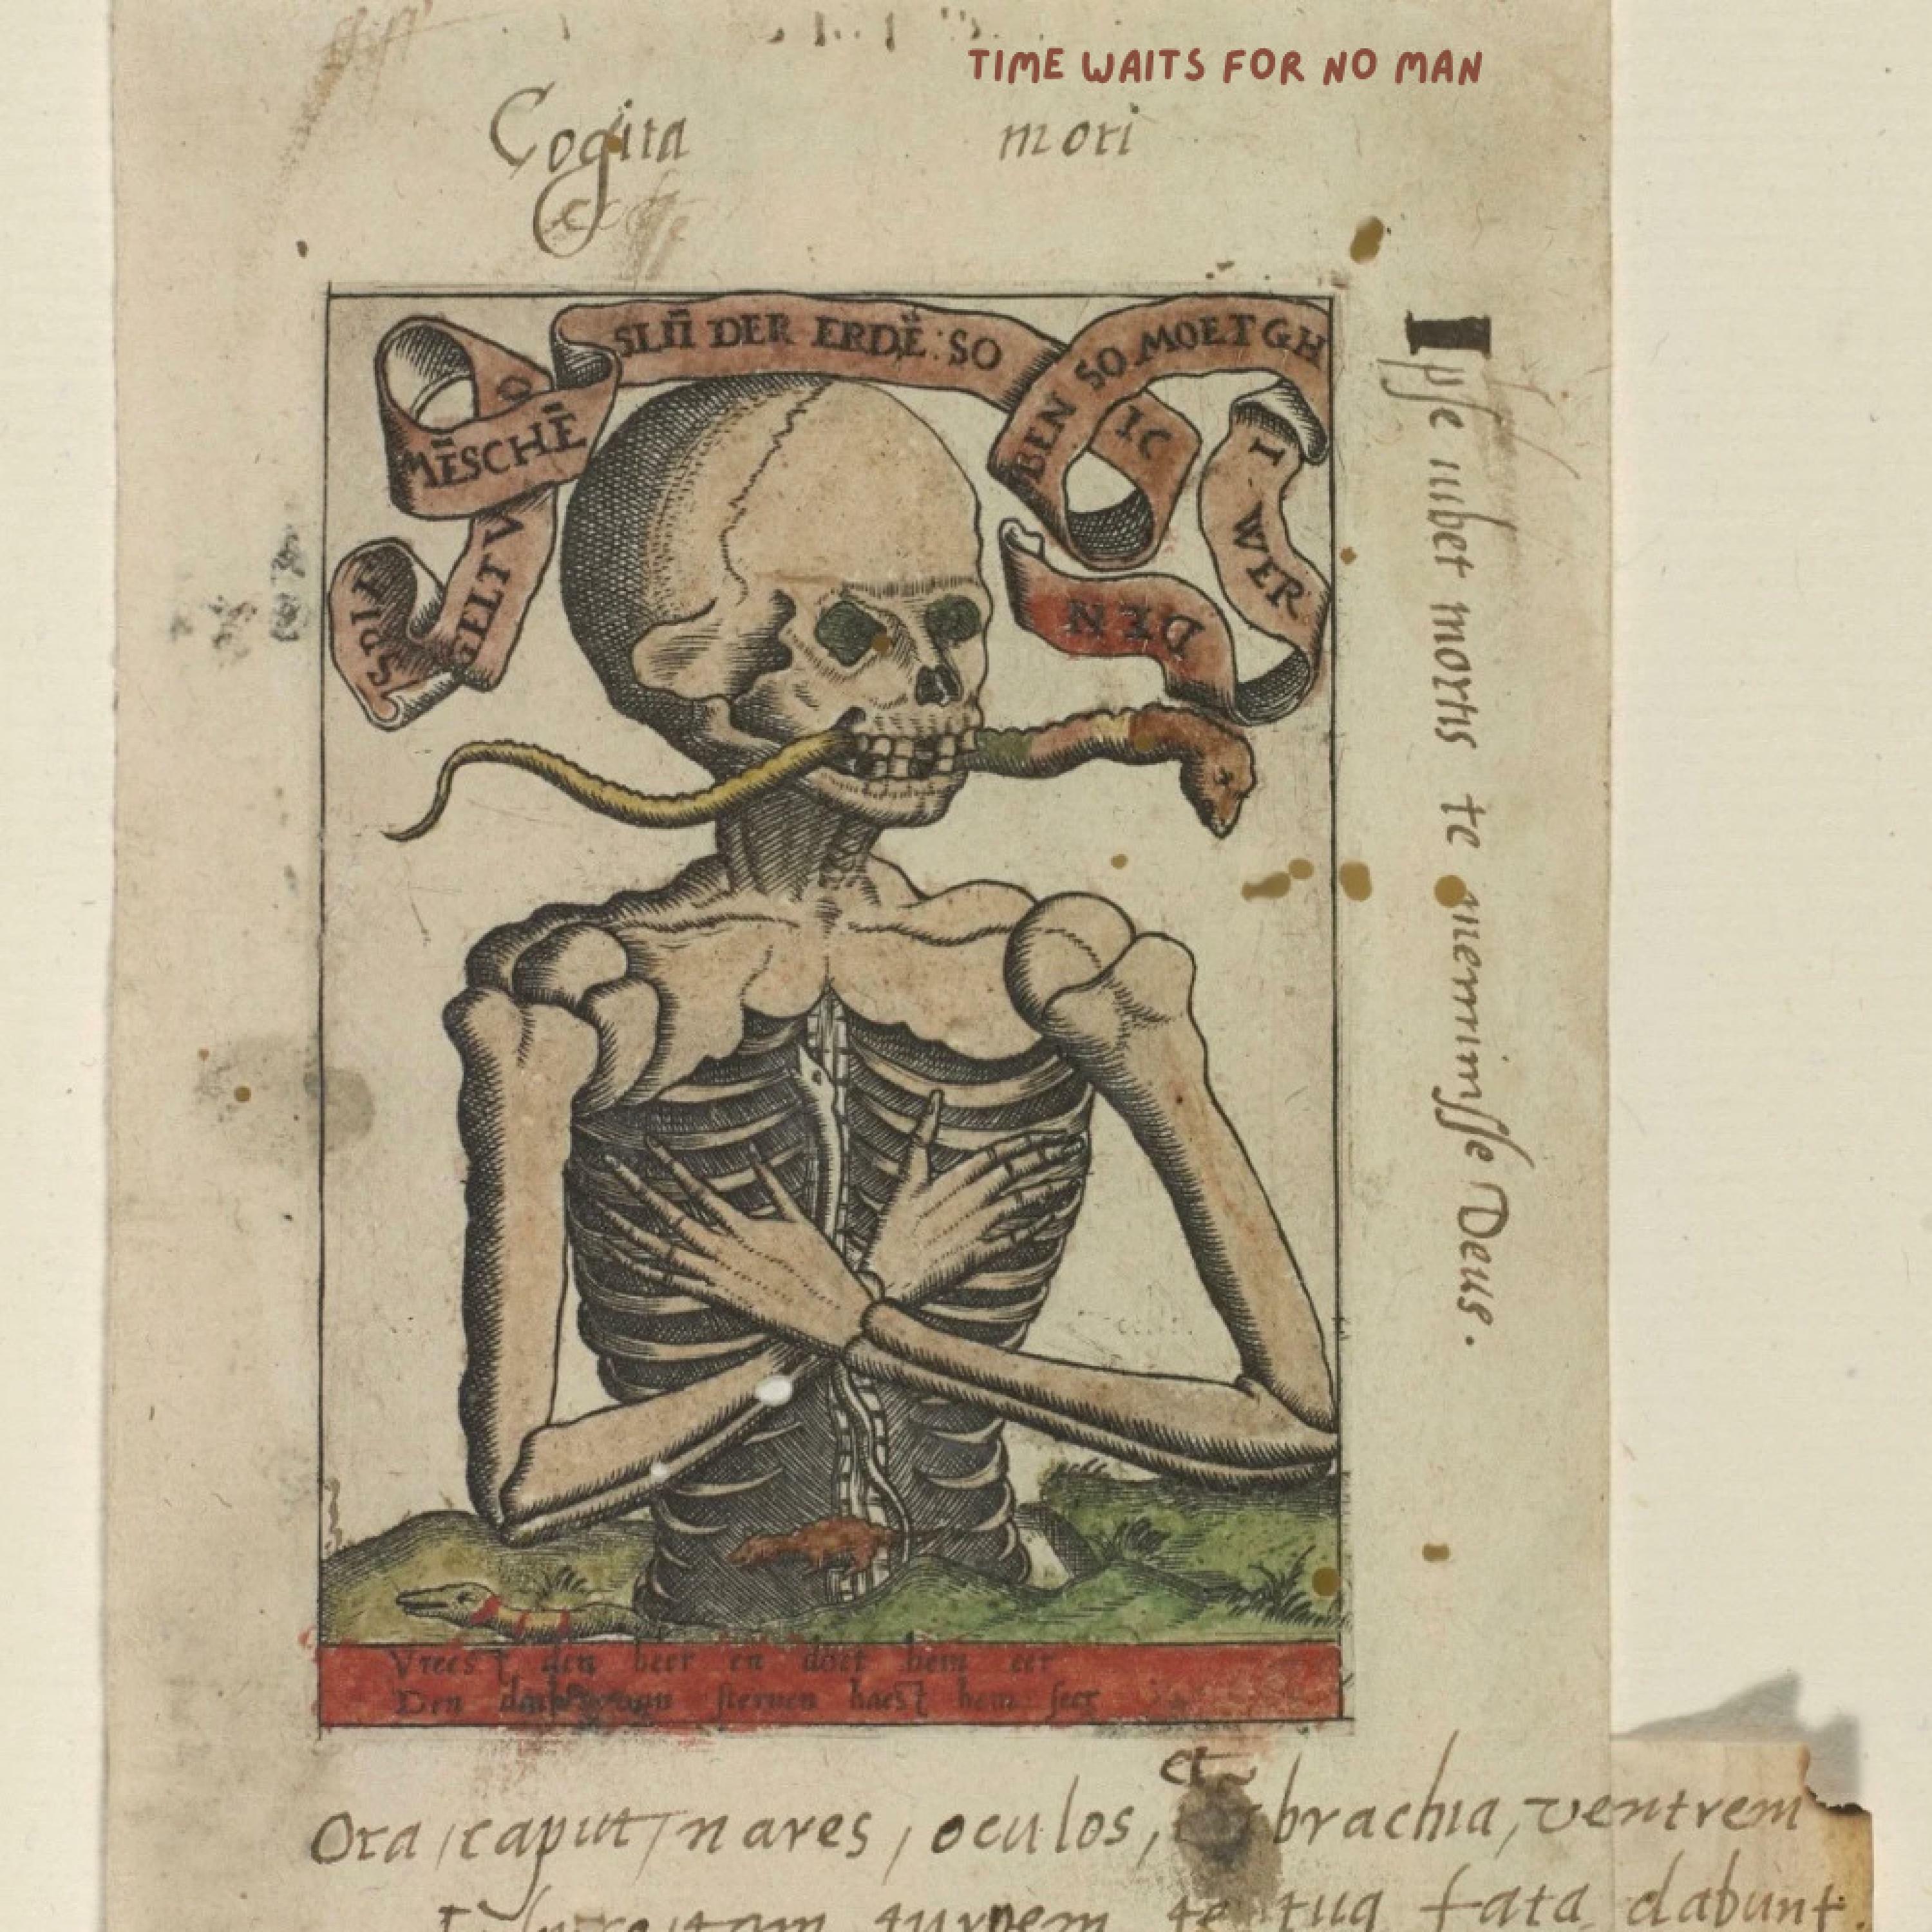 TIME WAITS FOR NO MAN
Cogita mori
SPIE
GELT V
O
MĒSCHĒ
DER ERDĒ : SO
IC
BEN SO MOET GH
I WER
DEN
Ipse iubet mortis te meminisse Deus.
Vreest den heer en doet hem eer
Den sterven haest hem seer
Ora, caput, nares, oculos, et brachia, ventrem
turpem te tua fata dabunt